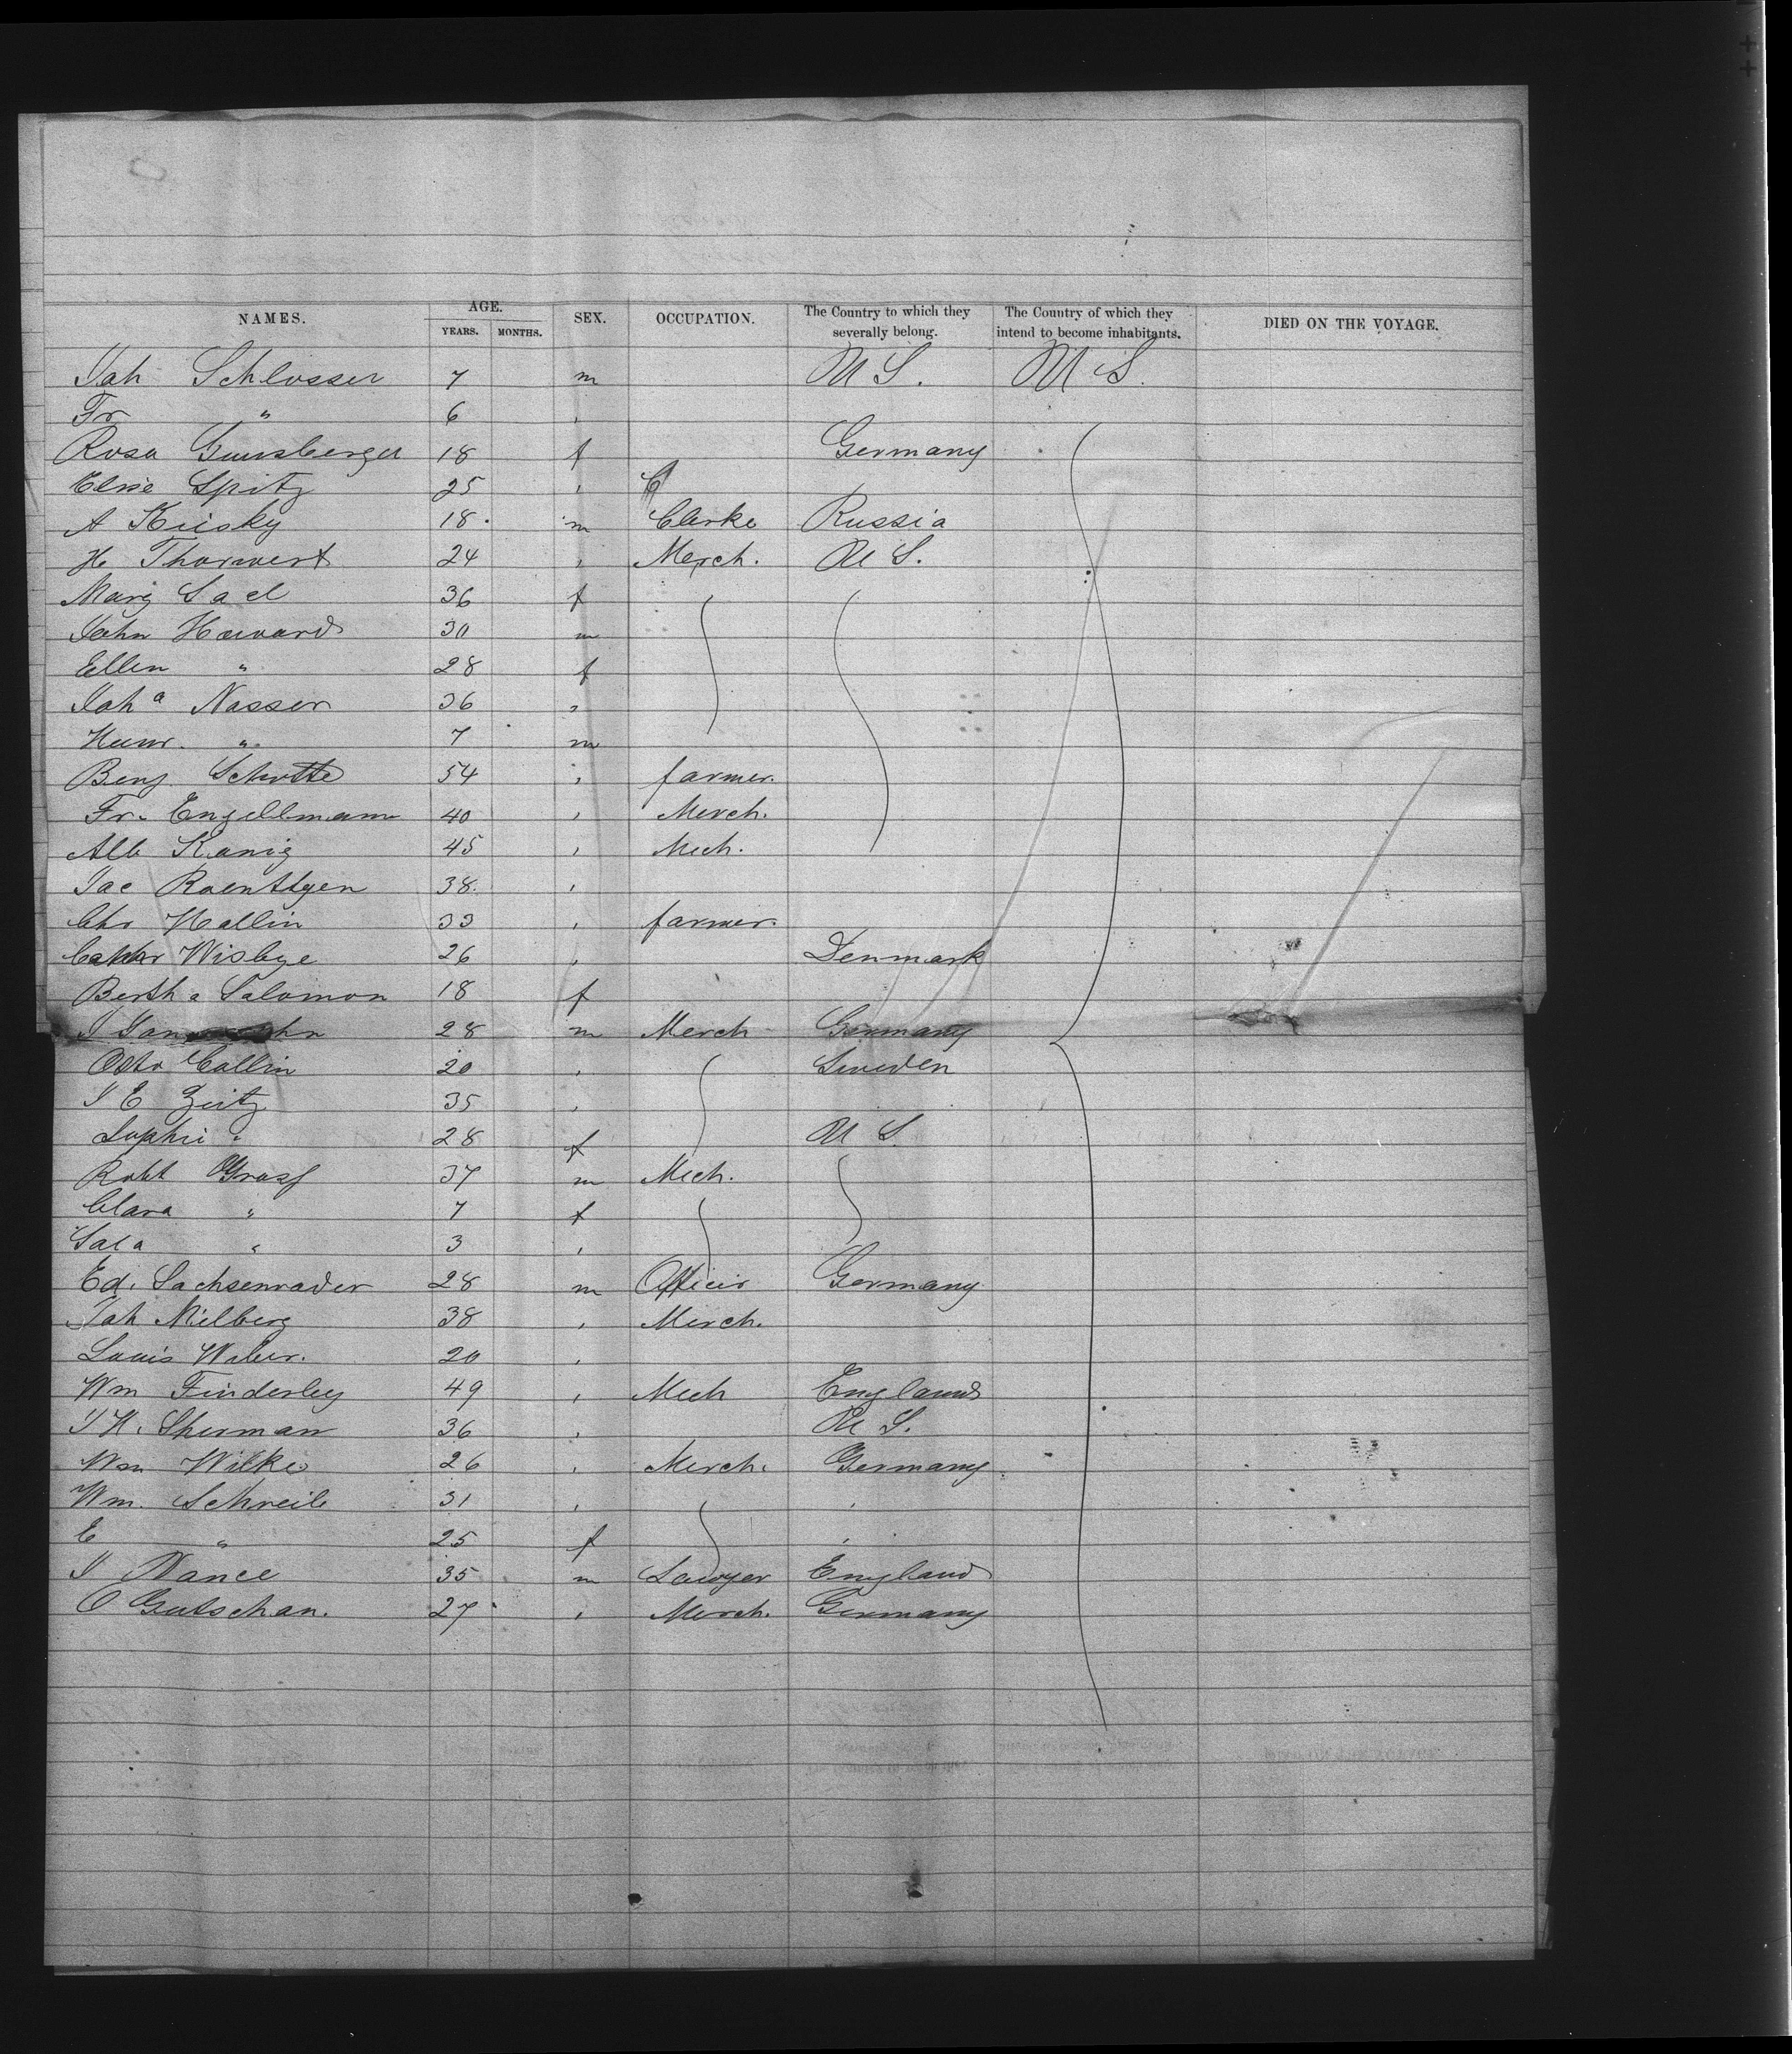 NAMES. AGE. YEARS. MONTHS. SEX. OCCUPATION. The Country to which they severally belong. The Country of which they intend to become inhabitants. DIED ON THE VOYAGE.
Joh Schlosser 7 m U S. U S.
Fr " 6 "
Rosa 18 f Germany
Elise Spitz 25 "
A 18. m Clerke Russia
H Thorwert 24 " Merch. U S.
Marg Sael 36 f
John Howard 30 m
Ellen " 28 f
Joh a Nasser 36 "
Heinr. " 7 m
Benj Schutte 54 " farmer.
Fr. Engellmann 40 " Merch.
Alb Kanig 45 " Mech.
Jac Roenttgen 38. "
Chr Hallin 33 " farmer.
Wisbye 26 " Denmark
Bertha Salomon 18 f
J 28 m Merch Germany
Otto Collin 20 " Sweden
J E Zeitz 35 "
Sophie " 28 f U S
Robt Grosf 37 m Mech.
Clara " 7 f
" 3 "
Ed. Sachsenrader 28 m Officir Germany
Joh Milberg 38 " Merch.
Louis Weber. 20 "
Wm Finderley 49 " Mech England
J H. Sherman 36 " U S.
Wm Wilke 26 " Merch. Germany
Wm. Schreib 31 " "
E " 25 f "
J Nance 35 m Lawyer England
O Gutschan. 27 " Merch. Germany